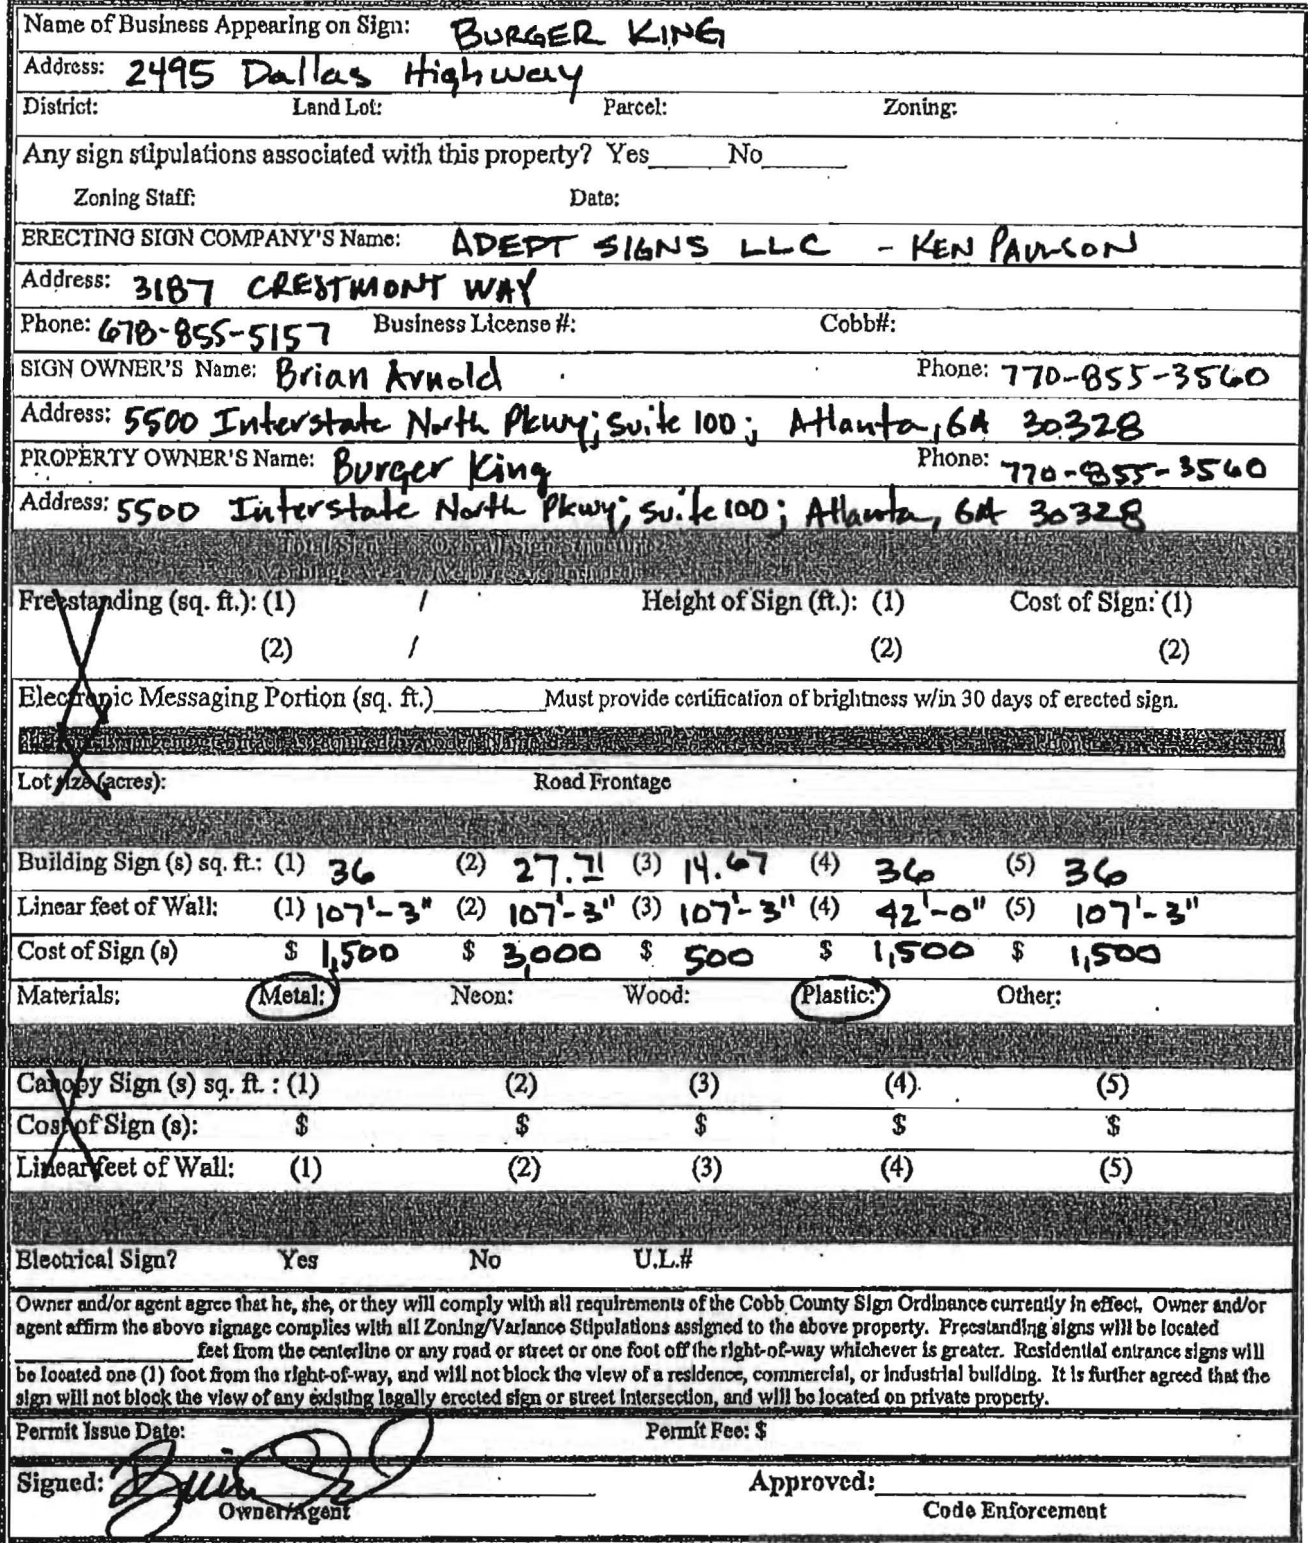 Name of Business Appearing on Sign: BURGER KING
Address: 2495 Dallas Highway
District: Land Lot: Parcel: Zoning:
Any sign stipulations associated with this property? Yes_____ No_______
Zoning Staff: Date:
ERECTING SIGN COMPANY'S Name: ADEPT SIGNS LLC - KEN PAULSON
Address: 3187 CRESTMONT WAY
Phone: 678-855-5157 Business License #: Cobb#:
SIGN OWNER'S Name: Brian Arnold Phone: 770-855-3560
Address: 5500 Interstate North Pkwy; Suite 100; Atlanta, GA 30328
PROPERTY OWNER'S Name: Burger King Phone: 770-855-3560
Address: 5500 Interstate North Pkwy; Suite 100; Atlanta, GA 30328
Total Sign / Overall Sign Structure
Freestanding (sq. ft.): (1) / Height of Sign (ft.): (1) Cost of Sign: (1)
(2) / (2) (2)
Electronic Messaging Portion (sq. ft.)________Must provide certification of brightness w/in 30 days of erected sign.
Lot size (acres): Road Frontage
Building Sign (s) sq. ft.: (1) 36 (2) 27.71 (3) 14.67 (4) 36 (5) 36
Linear feet of Wall: (1) 107'-3" (2) 107'-3" (3) 107'-3" (4) 42'-0" (5) 107'-3"
Cost of Sign (s) $ 1,500 $ 3,000 $ 500 $ 1,500 $ 1,500
Materials: Metal: Neon: Wood: Plastic: Other:
Canopy Sign (s) sq. ft. : (1) (2) (3) (4) (5)
Cost of Sign (s): $ $ $ $ $
Linear feet of Wall: (1) (2) (3) (4) (5)
Electrical Sign? Yes No U.L.#
Owner and/or agent agree that he, she, or they will comply with all requirements of the Cobb County Sign Ordinance currently in effect. Owner and/or
agent affirm the above signage complies with all Zoning/Variance Stipulations assigned to the above property. Freestanding signs will be located
____________________ feet from the centerline or any road or street or one foot off the right-of-way whichever is greater. Residential entrance signs will
be located one (1) foot from the right-of-way, and will not block the view of a residence, commercial, or industrial building. It is further agreed that the
sign will not block the view of any existing legally erected sign or street intersection, and will be located on private property.
Permit Issue Date: Permit Fee: $
Signed: Approved:
Owner/Agent Code Enforcement